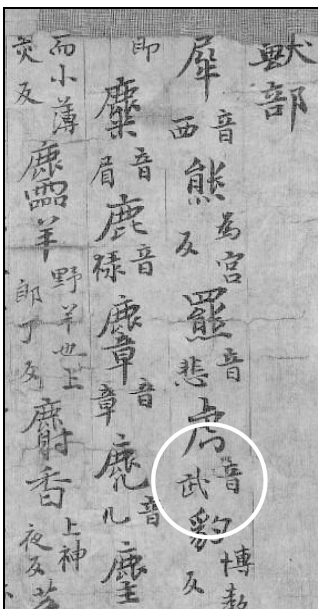 獸部
犀音西熊為宮反羆音悲虎音武豹博教反
即麋音眉鹿音祿麞音章麂音几麈
而小薄炙反麢羊野羊也上郎丁反麝香上神夜反